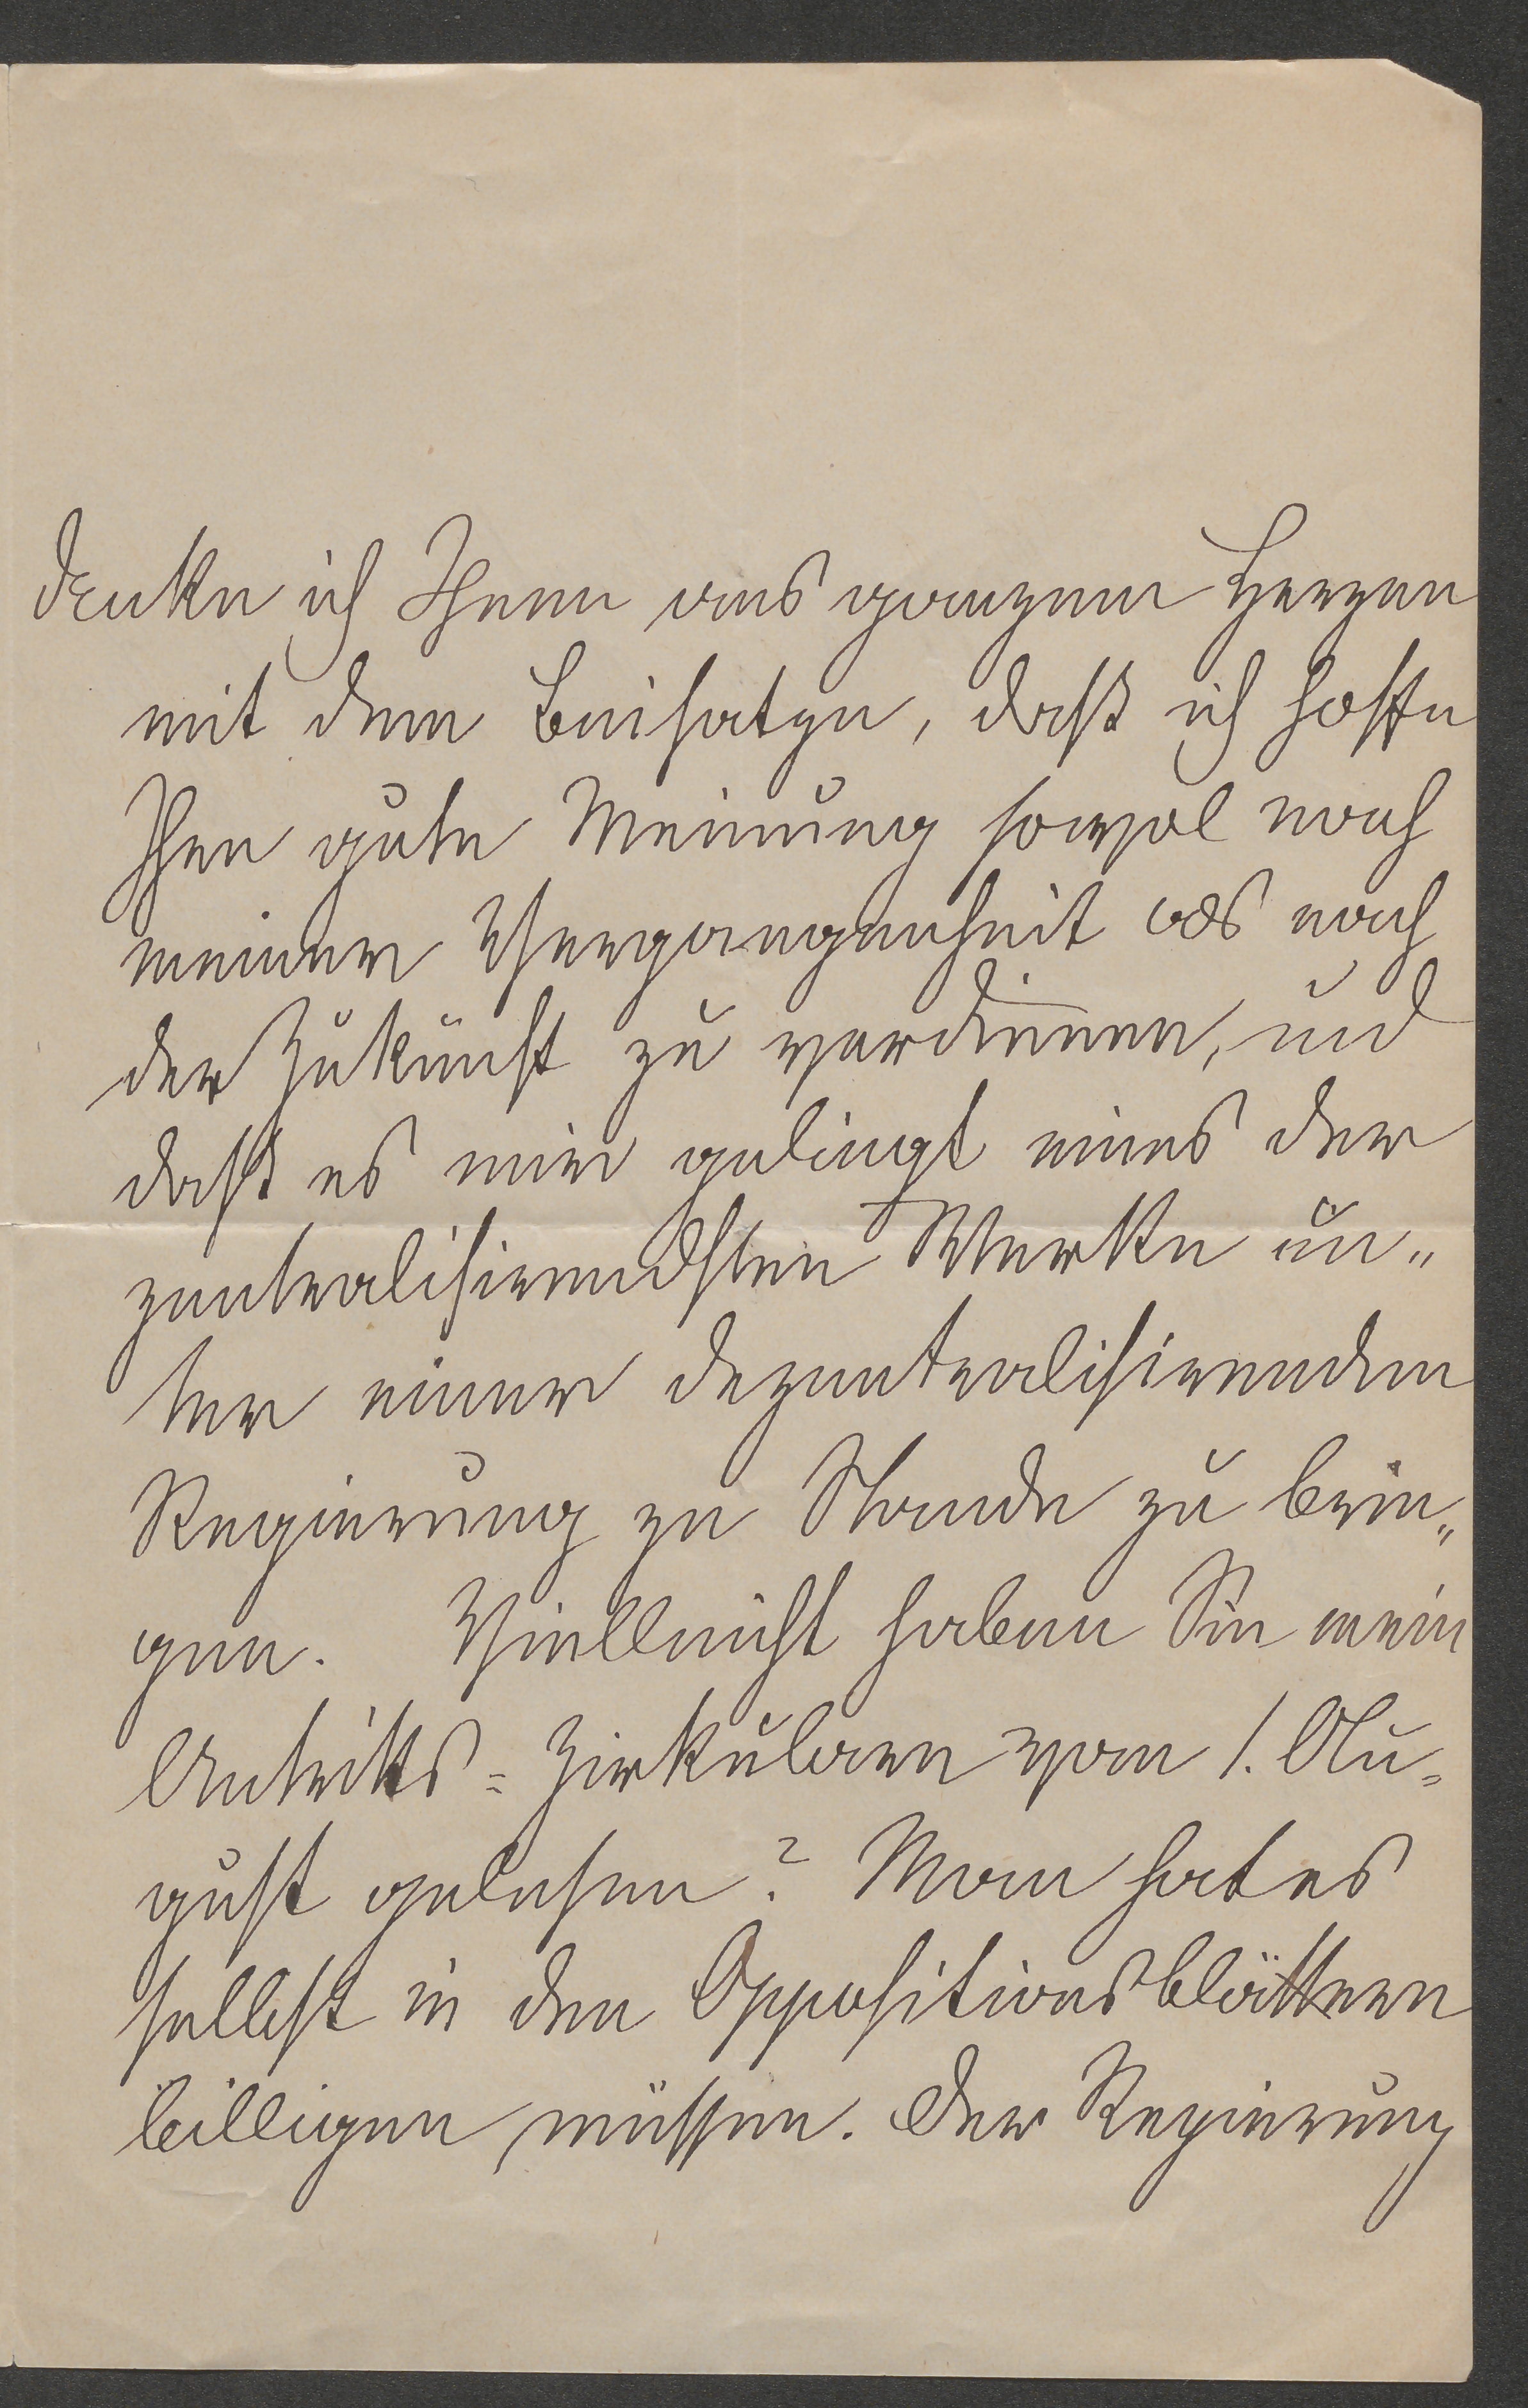 danke ich Ihnen aus ganzem Herzen
mit dem Beisatze, daß ich hoffe
Ihre gute Meinung sowol nach
meiner Vergangenheit als nach
der Zukunft zu verdienen, und
daß es mir gelingt eines der
zentralisirendsten Werke un„
ter einer dezentralisirenden
Regierung zu Stande zu brin„
gen. Vielleicht haben Sie mein
Antritts=Zirkulare vom 1. Au=
gust gelesen? Man hat es
selbst in den Oppositionsblättern
billigen müssen. Der Regierung